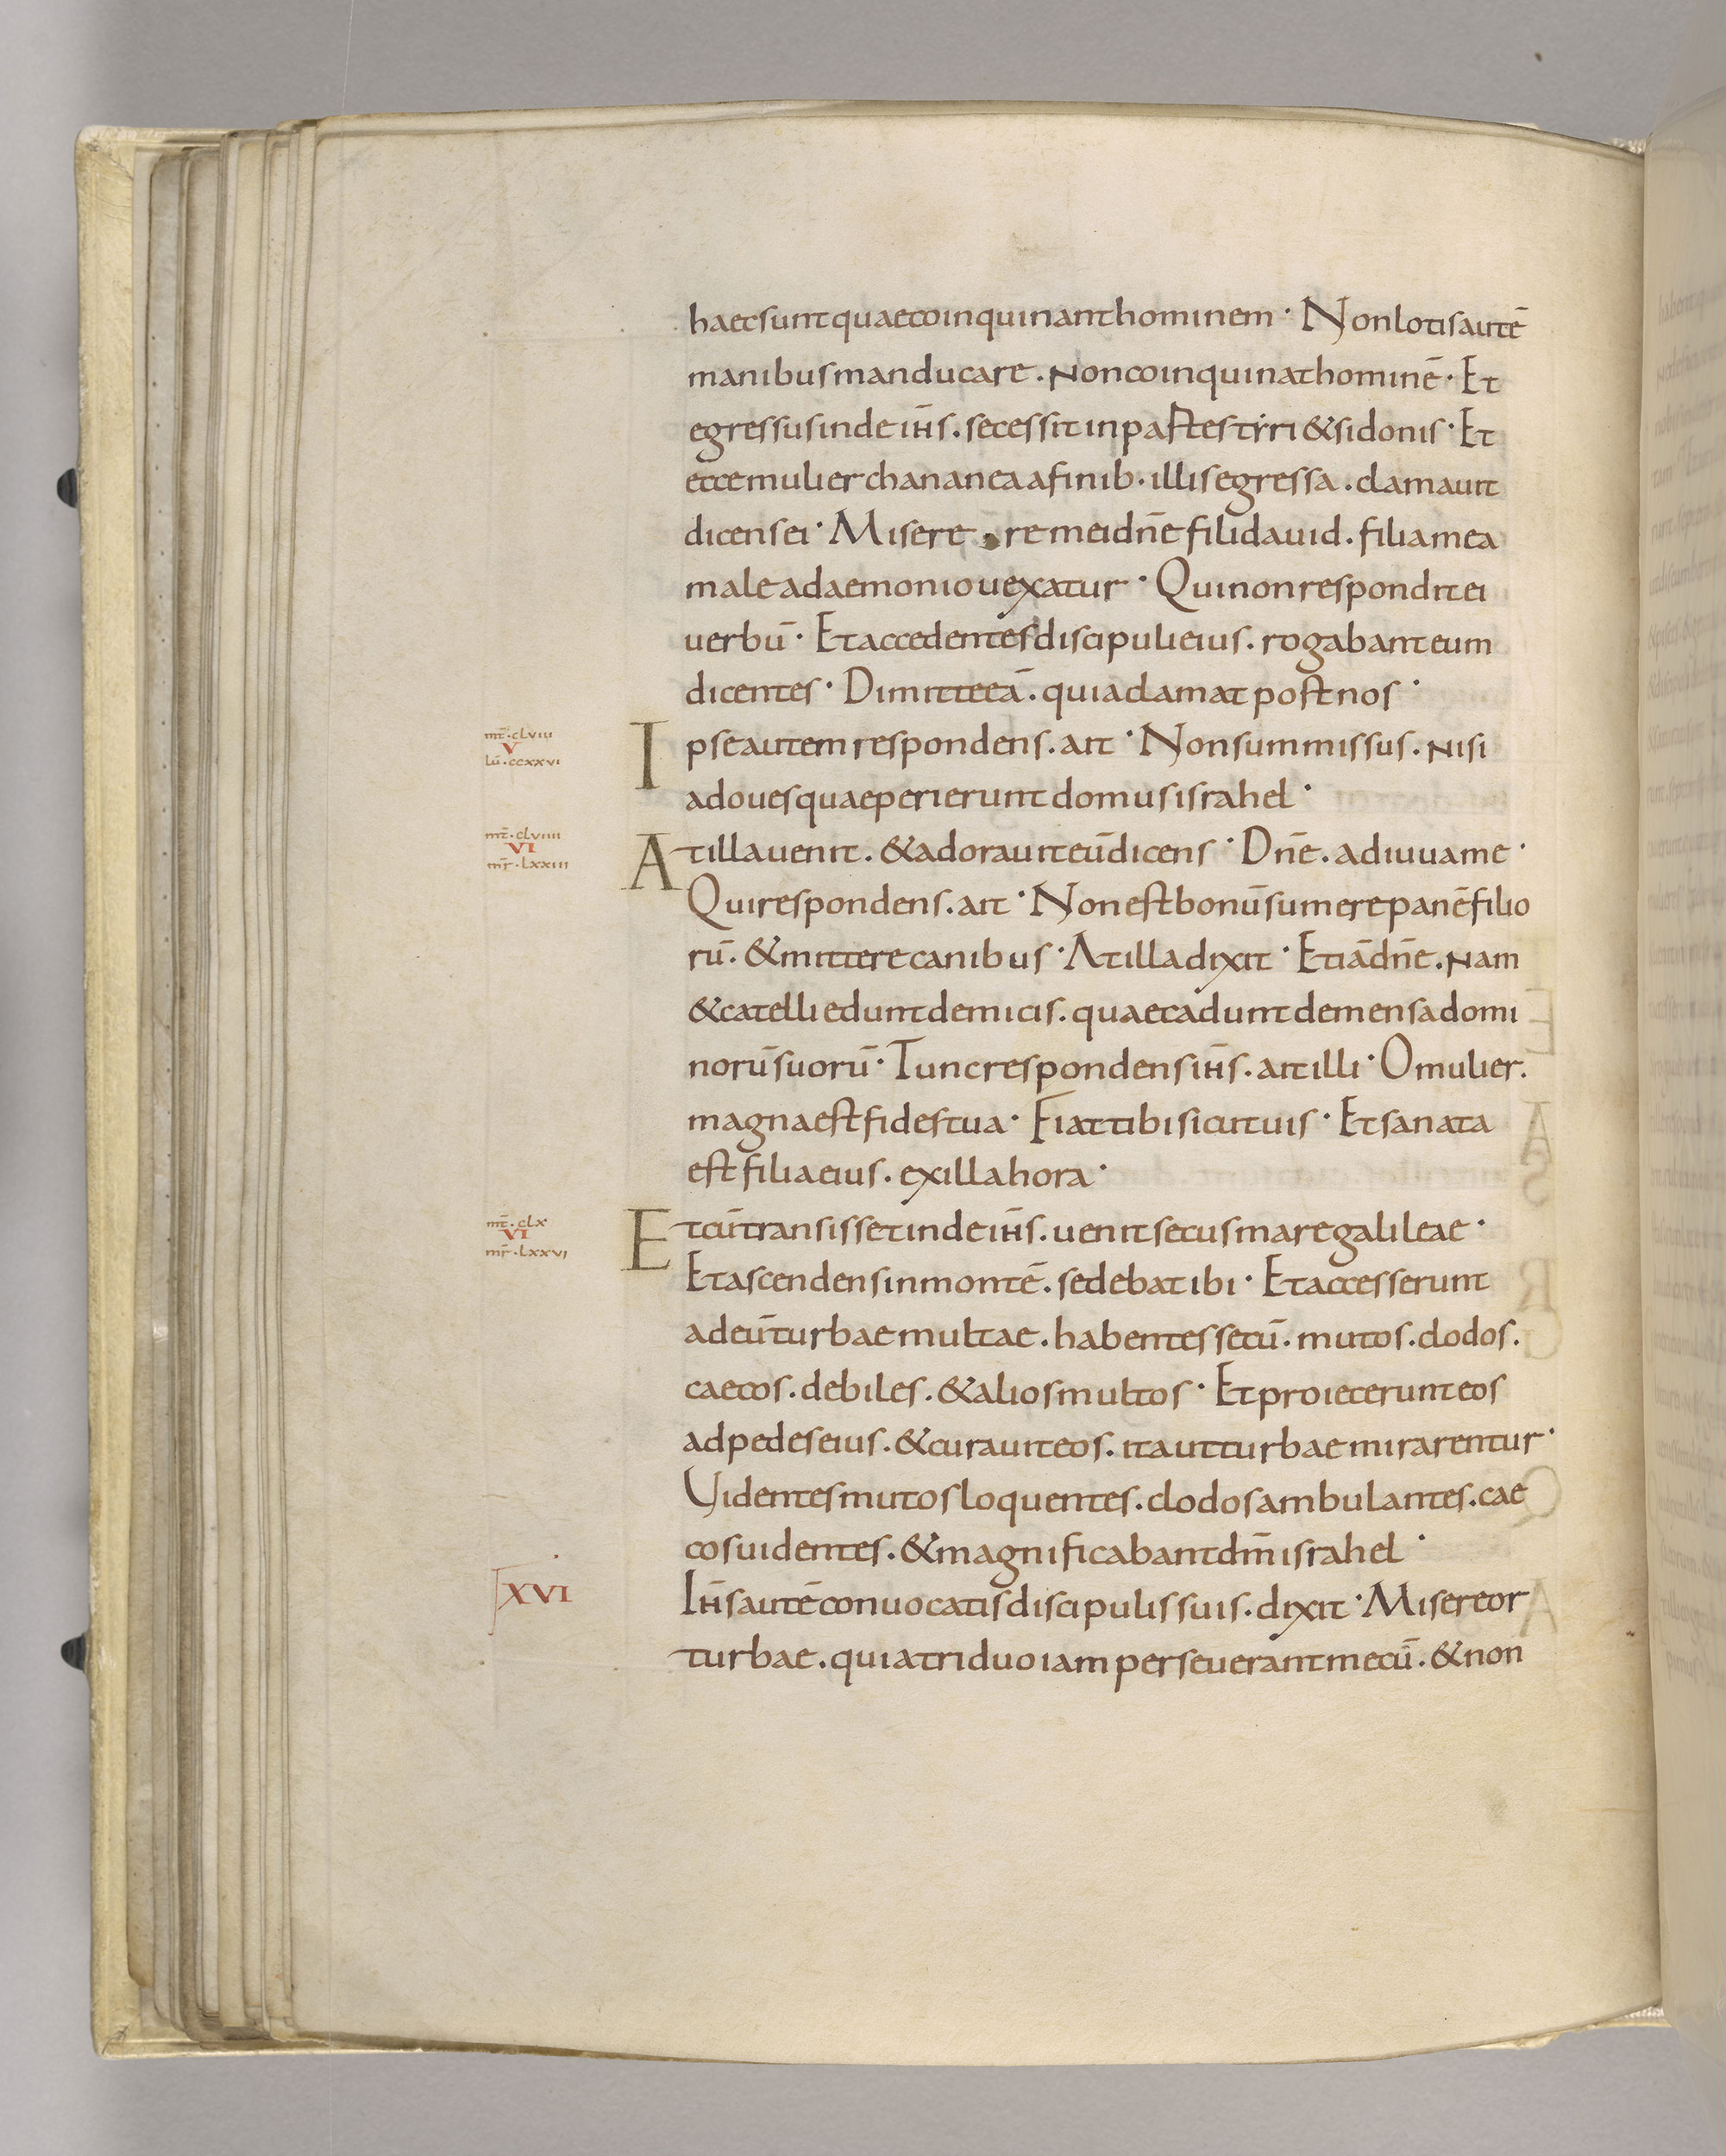 haec sunt quae coinquinant hominem · Non lotis autē
manibus manducare . Non coinquinat hominē · Et
egressus inde ih̄s . secessit in partes tyri & sidonis · Et
ecce mulier chananea a finib · illis egressa . clamauit
dicens ei · Misere re mei dn̄e fili dauid . filia mea
male a daemonio uexatur · Qui non respondit ei
uerbū · Et accedentes discipuli eius . rogabant eum
dicentes · Dimitte eā . quia clamat post nos ·
mt̄ · clviii
V
lū · ccxxvi
Ipse autem respondens . ait · Non sum missus . Nisi
ad oues quae perierunt domus israhel ·
mt̄ · clviiii
VI
mr̄ · lxxiii
At illa uenit . & adorauit eū dicens · Dn̄e . adiuua me ·
Qui respondens . ait · Non est bonū sumere panē filio
rū . & mittere canibus · At illa dixit · Etiā dn̄e . Nam
& catelli edunt de micis . quae cadunt de mensa domi
norū suorū · Tunc respondens ih̄s . ait illi · O mulier .
magna est fides tua · Fiat tibi sicut uis · Et sanata
est filia eius . ex illa hora ·
mt̄ · clx
VI
mr̄ · lxxvi
Et cū transisset inde ih̄s . uenit secus mare galileae ·
Et ascendens in montē . sedebat ibi · Et accesserunt
ad eū turbae multae . habentes secū . mutos . clodos .
caecos . debiles . & alios multos · Et proiecerunt eos
ad pedes eius . & curauit eos . ita ut turbae mirarentur ·
Uidentes mutos loquentes . clodos ambulantes . cae
cos uidentes . & magnificabant dm̄ israhel ·
XVI
Ih̄s autē conuocatis discipulis suis . dixit · Misereor
turbae . quia triduo iam perseuerant mecū . & non